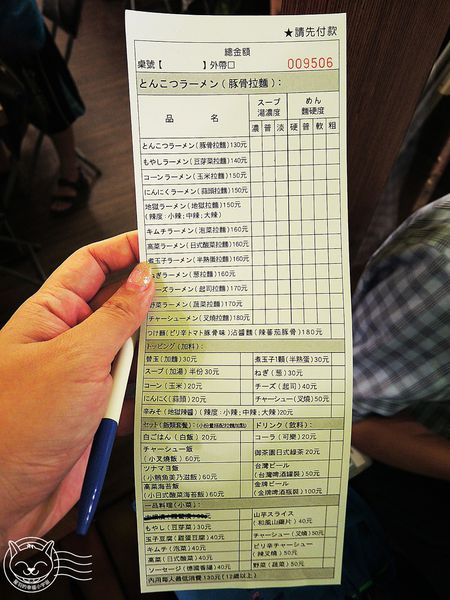 ★請先付款
總金額
桌號【 】外帶□ 009506
とんこつラーメン(豚骨拉麵):
品 名
スープ 湯濃度
めん 麵硬度
濃 普 淡 硬 普 軟 粗
とんこつラーメン(豚骨拉麵)130元
もやしラーメン(豆芽菜拉麵)140元
コーンラーメン(玉米拉麵)150元
にんにくラーメン(蒜頭拉麵)150元
地獄ラーメン(地獄拉麵)150元
(辣度:小辣;中辣;大辣)
キムチラーメン(泡菜拉麵)160元
高菜ラーメン(日式酸菜拉麵)160元
煮玉子ラーメン(半熟蛋拉麵)160元
ぎラーメン(葱拉麵)160元
ーズラーメン(起司拉麵)170元
野菜ラーメン(蔬菜拉麵)170元
チャーシューメン(叉燒拉麵)180元
つけ麵(ピリ辛トマト豚骨味)沾醬麵(辣蕃茄豚骨)180元
トッピング(加料):
替玉(加麵)30元 煮玉子1顆(半熟蛋)30元
スープ(加湯)半份30元 ねぎ(葱)30元
コーン(玉米)20元 チーズ(起司)40元
にんにく(蒜頭)20元 チャーシュー(叉燒)50元
辛みそ(地獄辣醬)(辣度:小辣;中辣;大辣)20元
セット(飯類套餐):(小份量搭配拉麵加點) ドリンク(飲料):
白ごはん(白飯)20元 コーラ(可樂)20元
チャーシュー飯
(小叉燒飯)60元
御茶園日式綠茶20元
ツナマヨ飯
(小鮪魚美乃滋飯)60元
台灣ビール
(台灣啤酒罐裝)50元
高菜海苔飯
(小日式酸菜海苔飯)60元
金牌ビール
(金牌啤酒瓶裝)100元
一品料理(小菜):
山芋スライス
(和風山藥片)40元
もやし(豆芽菜)30元
玉子豆腐(雞蛋豆腐)40元 チャーシュー
(叉燒)50元
キムチ(泡菜)40元
高菜(日式酸菜)40元 ピリ辛チャーシュー
(辣叉燒)50元
ソーセージ(德國香腸)40元 野菜(蔬菜)50元
內用每人最低消費130元(12歲以上)